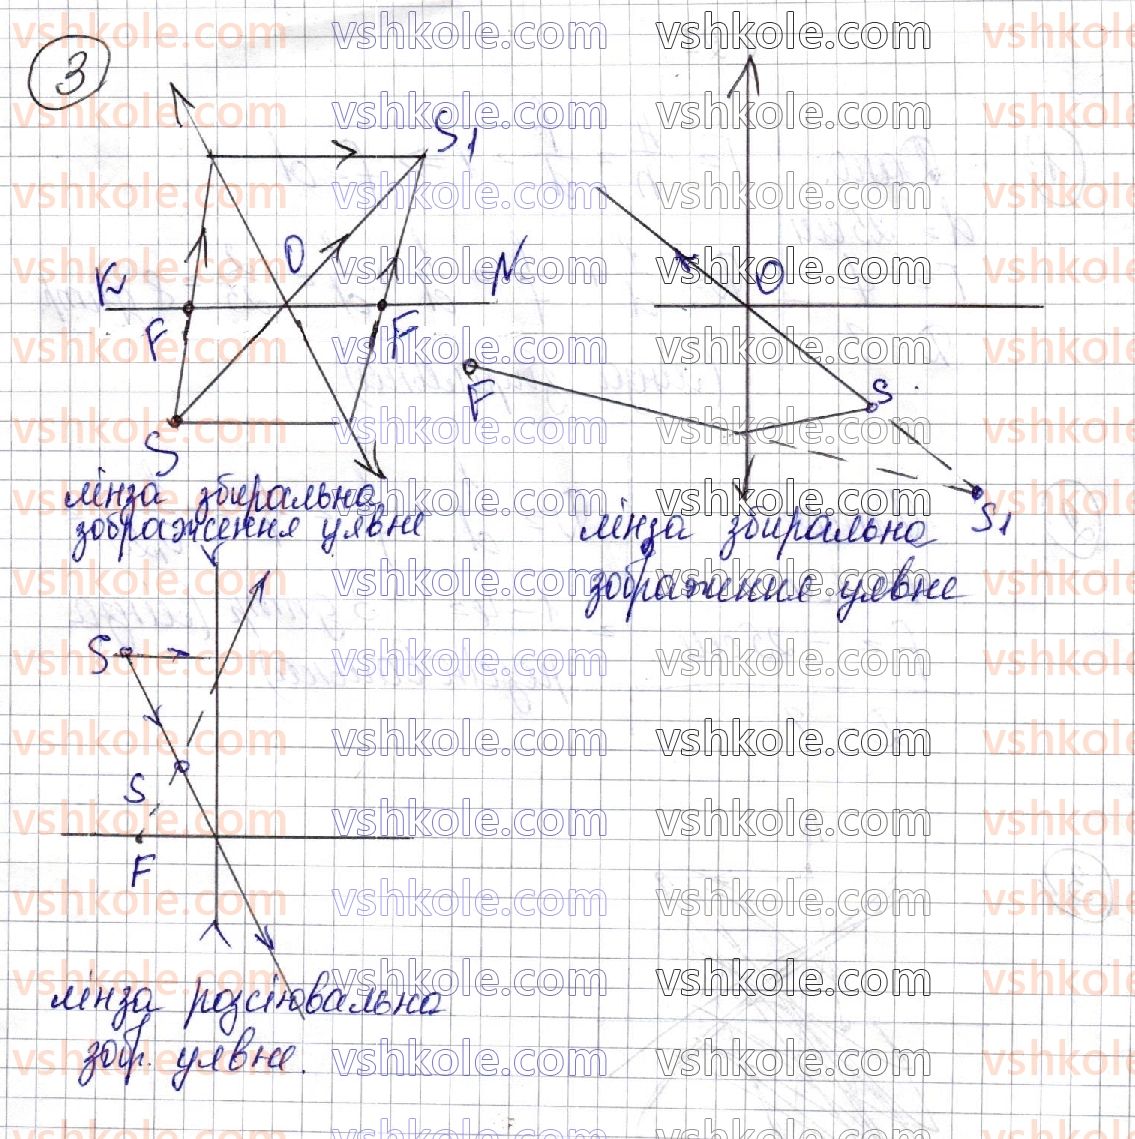 3
S1
O
K
N
F
F
S
лінза збиральна
зображення уявне
O
S
F
S1
лінза збиральна
зображення уявне
S
S
F
лінза розсіювальна
зобр. уявне.
vshkole.com